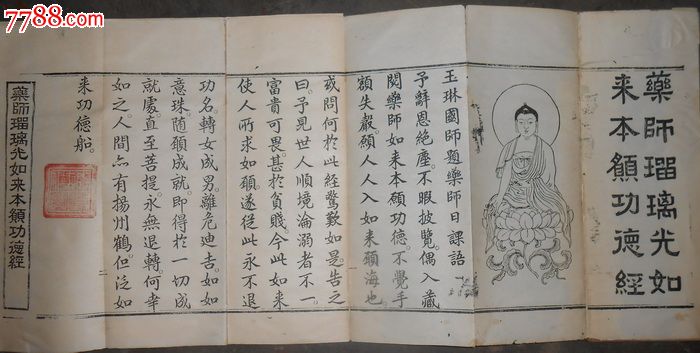 7788.com
藥師瑠璃光如
来本願功德經
玉琳國師題藥師日課語
予辭恩絶塵不暇披覽偶入藏
閱藥師如来本願功德不覺手
額失聲願人人入如来願海也
或問何於此經驚歎如是告之
曰予見世人順境淪溺者不一
富貴可畏甚於貧賤今此如来
使人所求如願遂從此永不退
功名轉女成男離危迪吉如如
意珠隨願成就即得於一切成
就處直至菩提永無退轉何幸
如之人間亦有揚州鶴但泛如
来功德船
藥師瑠璃光如来本願功德經
二